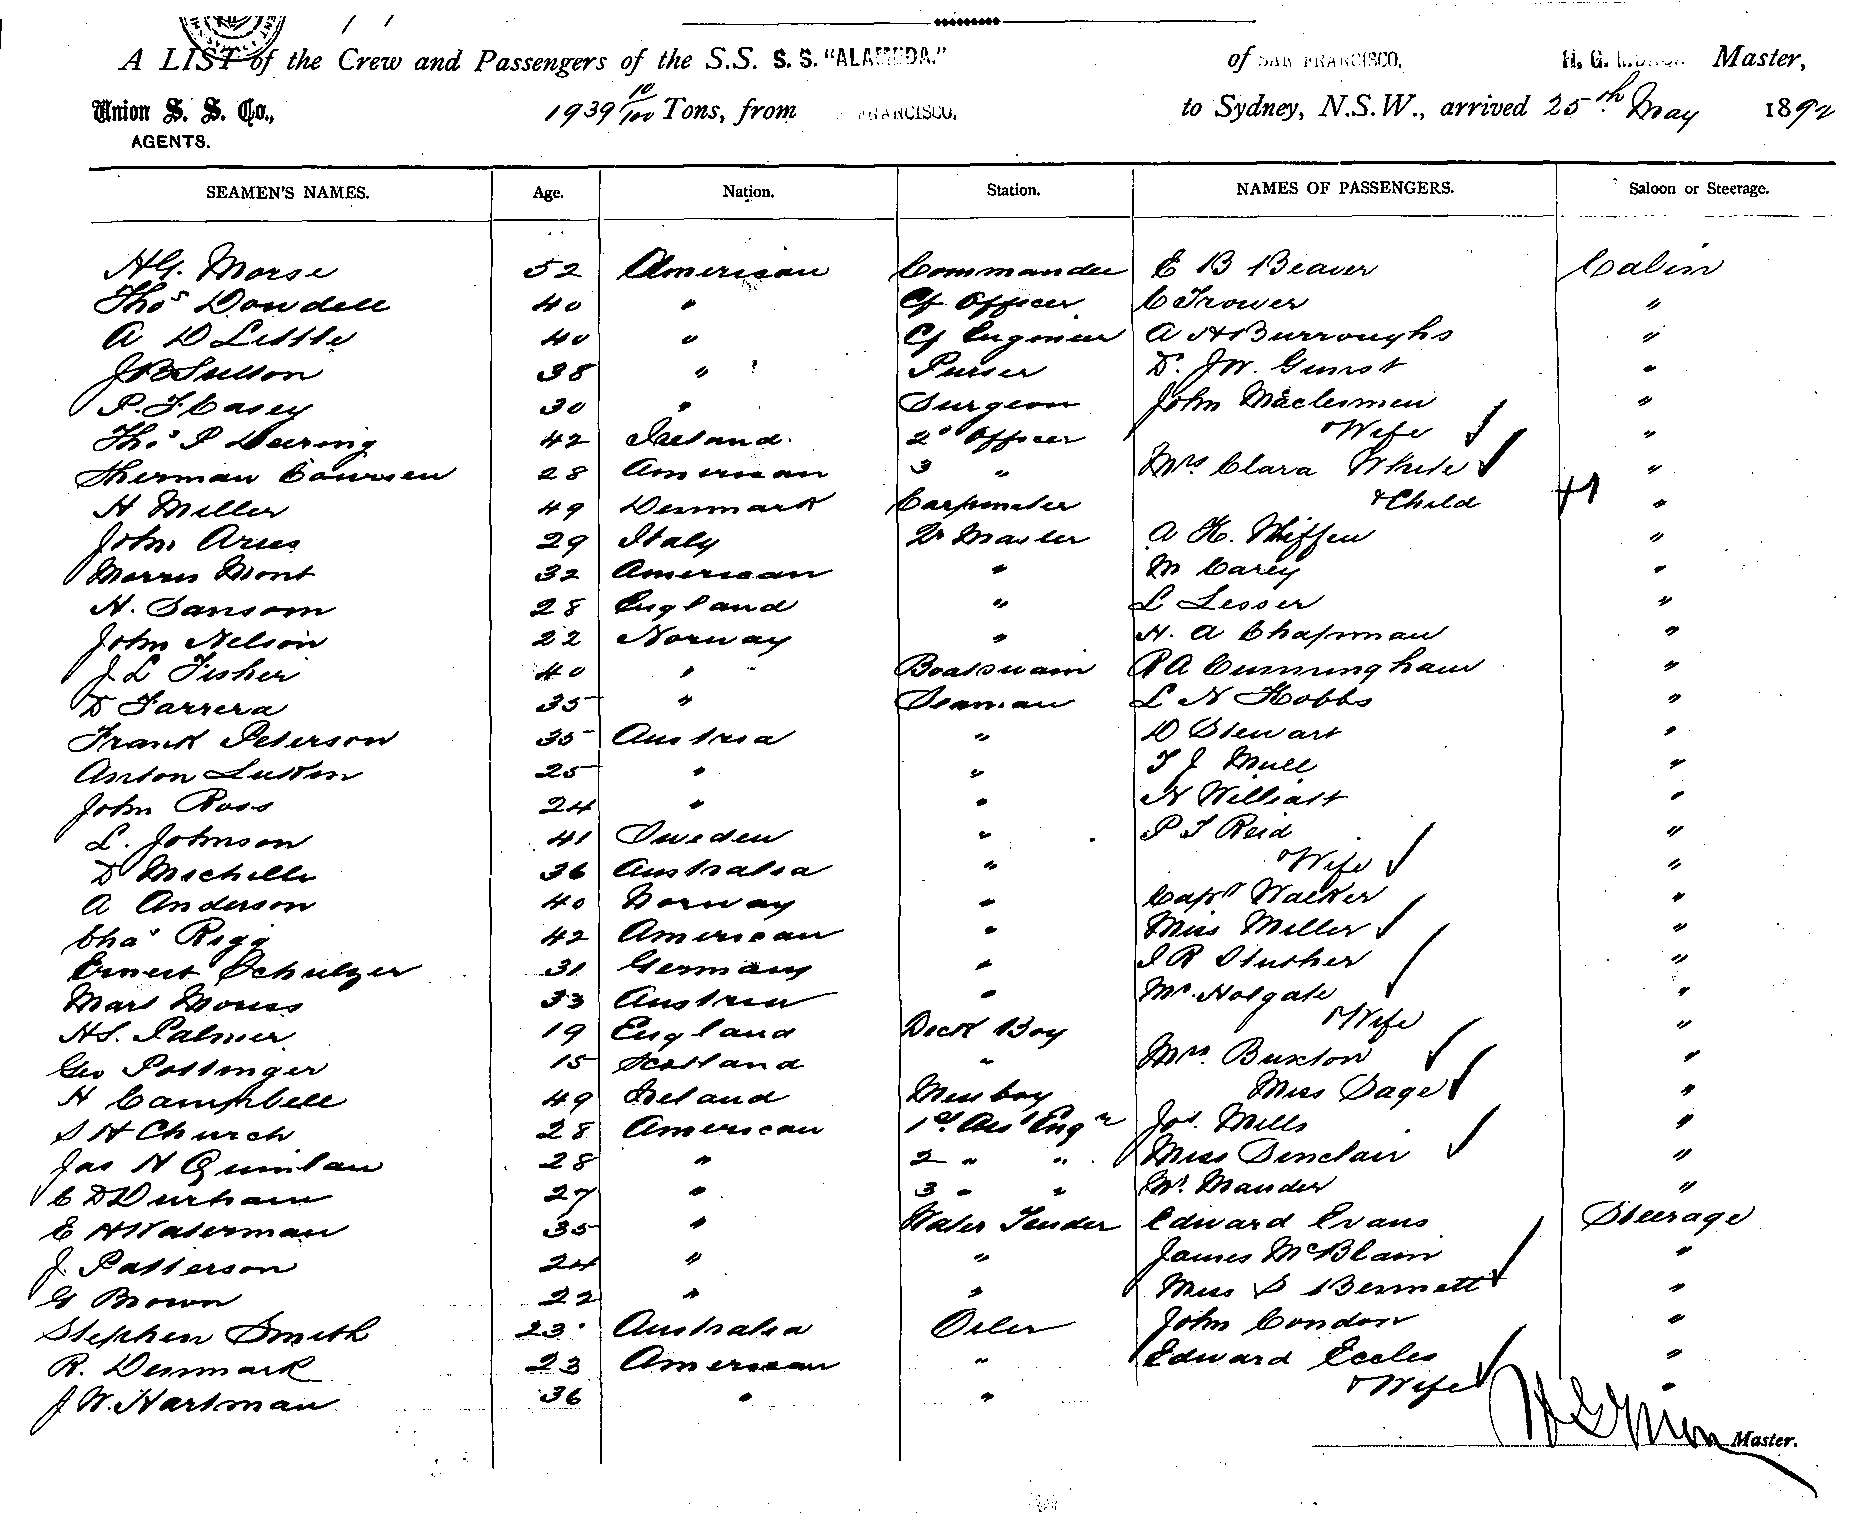 A LIST of the Crew and Passengers of the S.S. S. S. "ALAMEDA." of SAN FRANCISCO, H. G. Master,
Union S. S. Co., 1939 10/100 Tons, from FRANCISCO, to Sydney, N.S.W., arrived 25th May 1892
AGENTS.
SEAMEN'S NAMES. Age. Nation. Station. NAMES OF PASSENGERS. Saloon or Steerage.
HG. Morse 52 American Commander E B Beaver Cabin
Thos Dowdell 40 " Cf Officer C Trower "
A D Little 40 " Cf Engineer A H Burroughs "
J B Sutton 38 " Purser D. J W. Gunst "
P. F. Casey 30 " Surgeon John "
Thos P Deering 42 Ireland. 2d Officer & Wife "
Sherman 28 American 3 " Mrs Clara White "
H Miller 49 Denmark Carpenter & Child "
John 29 Italy Qr Master A. K. Thiffen "
Morris Mont 32 American " M Carey "
H. Sansom 28 England " L Lesser "
John Nelson 22 Norway " H. A Chapman "
J L Fisher 40 " Boatswain R A Cunningham "
D Farrera 35 " Seaman L N Hobbs "
Frank Peterson 35 Austria " D Stewart "
Anton Luskin 25 " " T J Mull "
John Ross 24 " " N "
L. Johnson 41 Sweden " P T Reid "
D Michelle 36 Australia " & Wife "
A Anderson 40 Norway " Captn Walker "
Chas Rigg 42 American " Miss Miller "
Ernest Schulzer 31 Germany " "
Marl 33 Austria " Mr. Holgate "
H S. Palmer 19 England Deck Boy & Wife "
Geo Pottinger 15 Scotland " Mrs. Buxton "
H Campbell 49 Ireland Messboy Miss Sage "
S H Church 28 American 1st Ass Engr Jos. Mills "
Jas H Quinlan 28 " 2 " " Miss Sinclair "
C D Durham 27 " 3 " " Mr. Mander "
E H Waterman 35 " Water Tender Edward Evans Steerage
J. Patterson 24 " " James McBlain "
G Brown 22 " " Miss S Bennett "
Stephen Smith 23 Australia Oiler John Condon "
R. Denmark 23 American " Edward Eccles "
J. W. Hartman 36 " " & Wife "
Master.